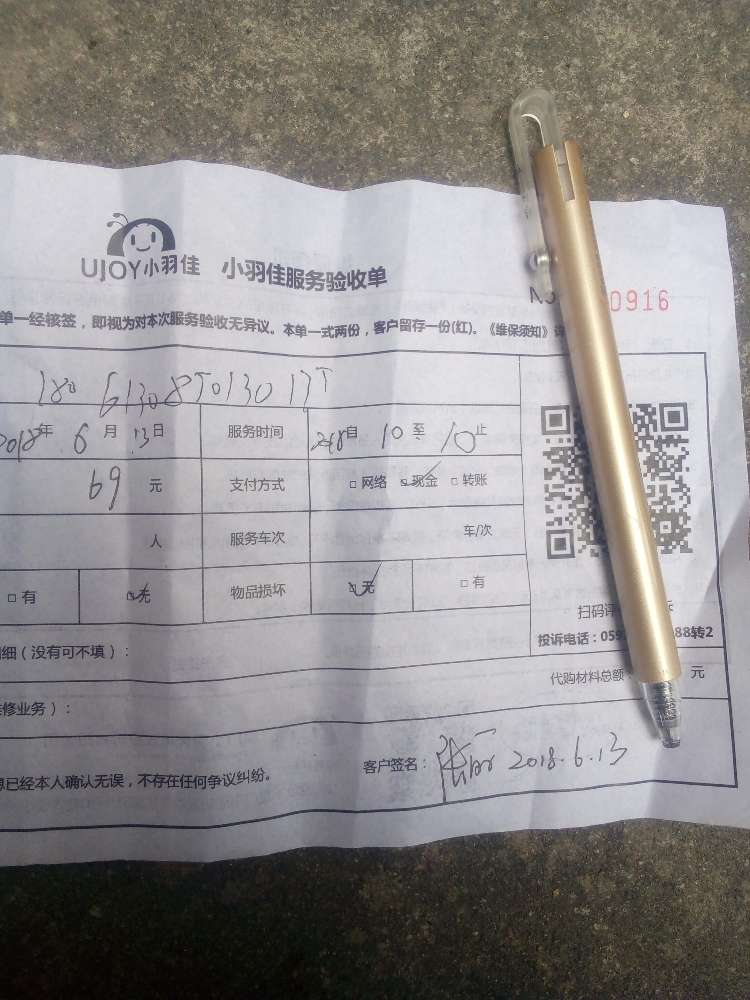 UJOY小羽佳 小羽佳服务验收单
0916
单一经核签，即视为对本次服务验收无异议。本单一式两份，客户留存一份(红)。《维保须知》
180613085013017
2018年6月13日 服务时间 自10至10止
69元 支付方式 □网络 □现金 □转账
人 服务车次 车/次
□有 □无 物品损坏 □无 □有
扫码评
投诉电话：059 88转2
细（没有可不填）：
代购材料总额 元
修业务）：
已经本人确认无误，不存在任何争议纠纷。
客户签名： 2018.6.13